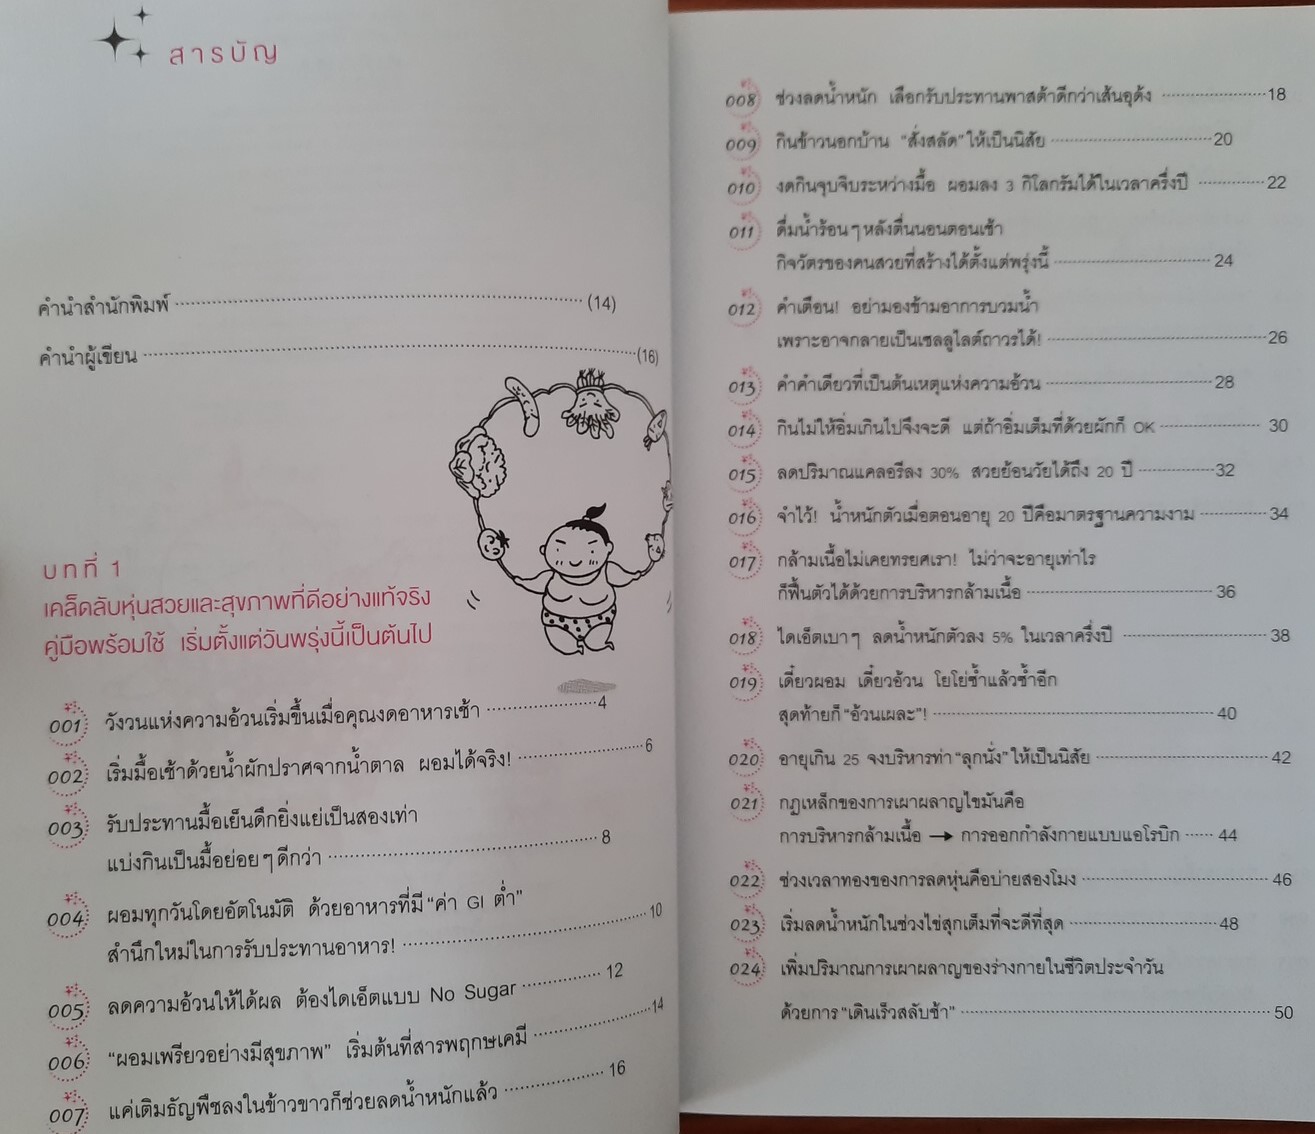 สารบัญ
คำนำสำนักพิมพ์ (14)
คำนำผู้เขียน (16)
บทที่ 1
เคล็ดลับหุ่นสวยและสุขภาพที่ดีอย่างแท้จริง
คู่มือพร้อมใช้ เริ่มตั้งแต่วันพรุ่งนี้เป็นต้นไป
001 วังวนแห่งความอ้วนเริ่มขึ้นเมื่อคุณงดอาหารเช้า 4
002 เริ่มมื้อเช้าด้วยน้ำผักปราศจากน้ำตาล ผอมได้จริง! 6
003 รับประทานมื้อเย็นดึกยิ่งแย่เป็นสองเท่า
แบ่งกินเป็นมื้อย่อยๆ ดีกว่า 8
004 ผอมทุกวันโดยอัตโนมัติ ด้วยอาหารที่มี "ค่า GI ต่ำ"
สำนึกใหม่ในการรับประทานอาหาร! 10
005 ลดความอ้วนให้ได้ผล ต้องไดเอ็ตแบบ No Sugar 12
006 "ผอมเพรียวอย่างมีสุขภาพ" เริ่มต้นที่สารพฤกษเคมี 14
007 แค่เติมธัญพืชลงในข้าวขาวก็ช่วยลดน้ำหนักแล้ว 16
008 ช่วงลดน้ำหนัก เลือกรับประทานพาสต้าดีกว่าเส้นอุด้ง 18
009 กินข้าวนอกบ้าน "สั่งสลัด" ให้เป็นนิสัย 20
010 งดกินจุบจิบระหว่างมื้อ ผอมลง 3 กิโลกรัมได้ในเวลาครึ่งปี 22
011 ดื่มน้ำร้อนๆ หลังตื่นนอนตอนเช้า
กิจวัตรของคนสวยที่สร้างได้ตั้งแต่พรุ่งนี้ 24
012 คำเตือน! อย่ามองข้ามอาการบวมน้ำ
เพราะอาจกลายเป็นเซลลูไลต์ถาวรได้! 26
013 คำคำเดียวที่เป็นต้นเหตุแห่งความอ้วน 28
014 กินไม่ให้อิ่มเกินไปจึงจะดี แต่ถ้าอิ่มเต็มที่ด้วยผักก็ OK 30
015 ลดปริมาณแคลอรีลง 30% สวยย้อนวัยได้ถึง 20 ปี 32
016 จำไว้! น้ำหนักตัวเมื่อตอนอายุ 20 ปีคือมาตรฐานความงาม 34
017 กล้ามเนื้อไม่เคยทรยศเรา! ไม่ว่าจะอายุเท่าไร
ก็ฟื้นตัวได้ด้วยการบริหารกล้ามเนื้อ 36
018 ไดเอ็ตเบาๆ ลดน้ำหนักตัวลง 5% ในเวลาครึ่งปี 38
019 เดี๋ยวผอม เดี๋ยวอ้วน โยโย่ซ้ำแล้วซ้ำอีก
สุดท้ายก็ "อ้วนเผละ"! 40
020 อายุเกิน 25 จงบริหารท่า "ลุกนั่ง" ให้เป็นนิสัย 42
021 กฎเหล็กของการเผาผลาญไขมันคือ
การบริหารกล้ามเนื้อ → การออกกำลังกายแบบแอโรบิก 44
022 ช่วงเวลาทองของการลดหุ่นคือบ่ายสองโมง 46
023 เริ่มลดน้ำหนักในช่วงไข่สุกเต็มที่จะดีที่สุด 48
024 เพิ่มปริมาณการเผาผลาญของร่างกายในชีวิตประจำวัน
ด้วยการ "เดินเร็วสลับช้า" 50